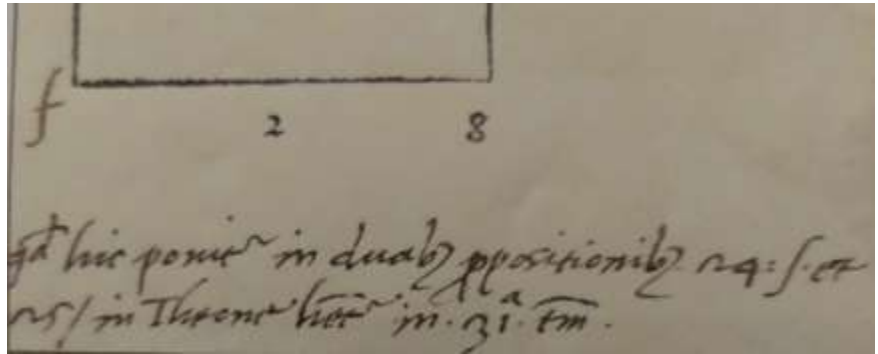 f
2 8
qd hic ponitr in duabꝫ ꝓpositionibꝫ 24: s. et
25/ in Theone hetr in. 31a. tm.